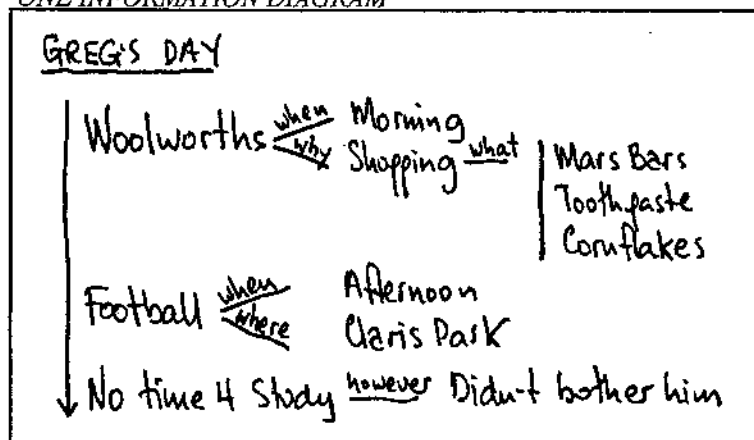 ONE INFORMATION DIAGRAM
GREG'S DAY
Woolworths when Morning
why Shopping what Mars Bars
Toothpaste
Cornflakes
Football when Afternoon
where Claris Park
No time 4 Study however Didn't bother him